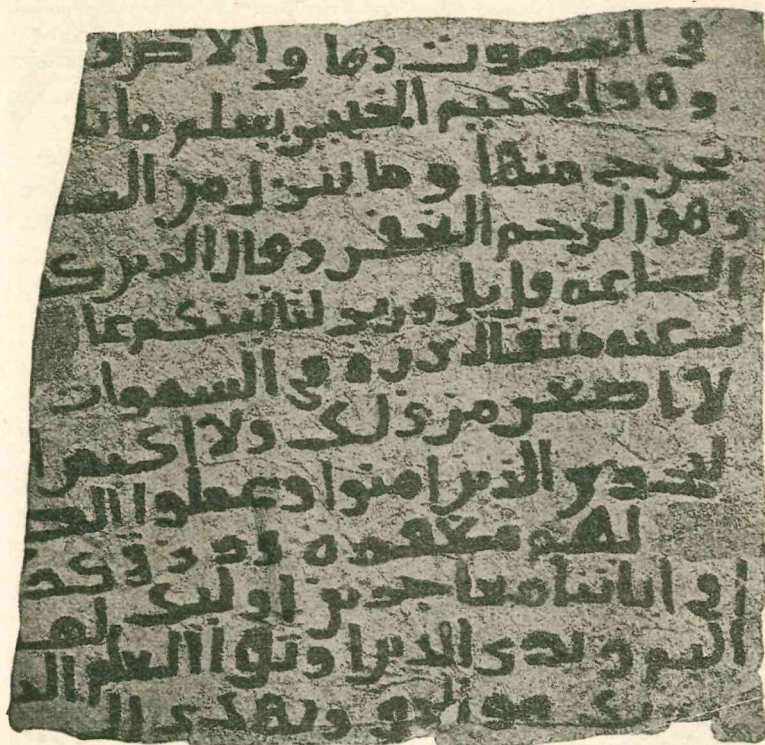 في السموت وما في الارض و
وهو الحكيم الخبير يعلم ما
يخرج منها وما ينزل من السـ
وهو الرحيم الغفر وقال الذين كـ
الساعة قل بلى وربي لتاتينكم عا
عنه مثقال ذره في السموات
لا اصغر من ذلك ولا اكبر ا
ليجزي الذين امنوا وعملوا الصـ
لهم مغفره ورزق كر
في اياتنا معاجزين اولئك لهـ
اليم ويرى الذين اوتوا العلم الذ
ـك هو الحق ويهدي ال